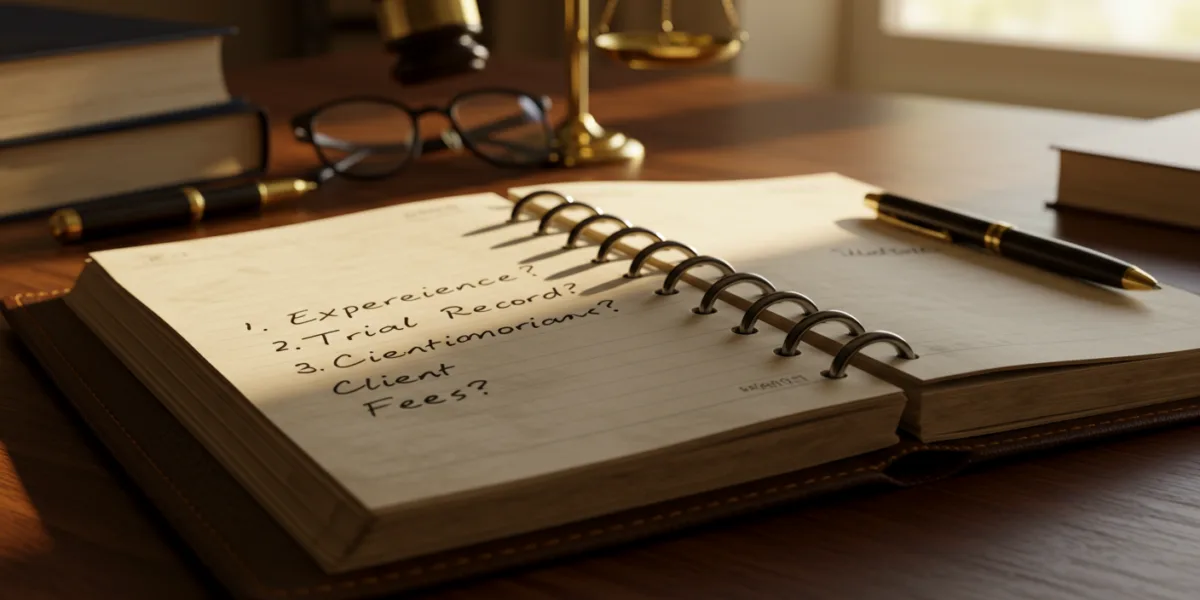 1. Expereience?
2. Trial Record?
3. Cientimorians?
Client
Fees?